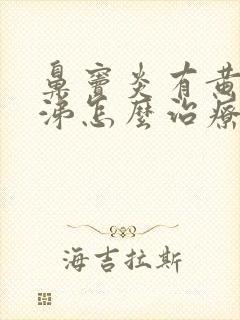 鼻窦炎有黄
涕怎麼治療
海吉拉斯